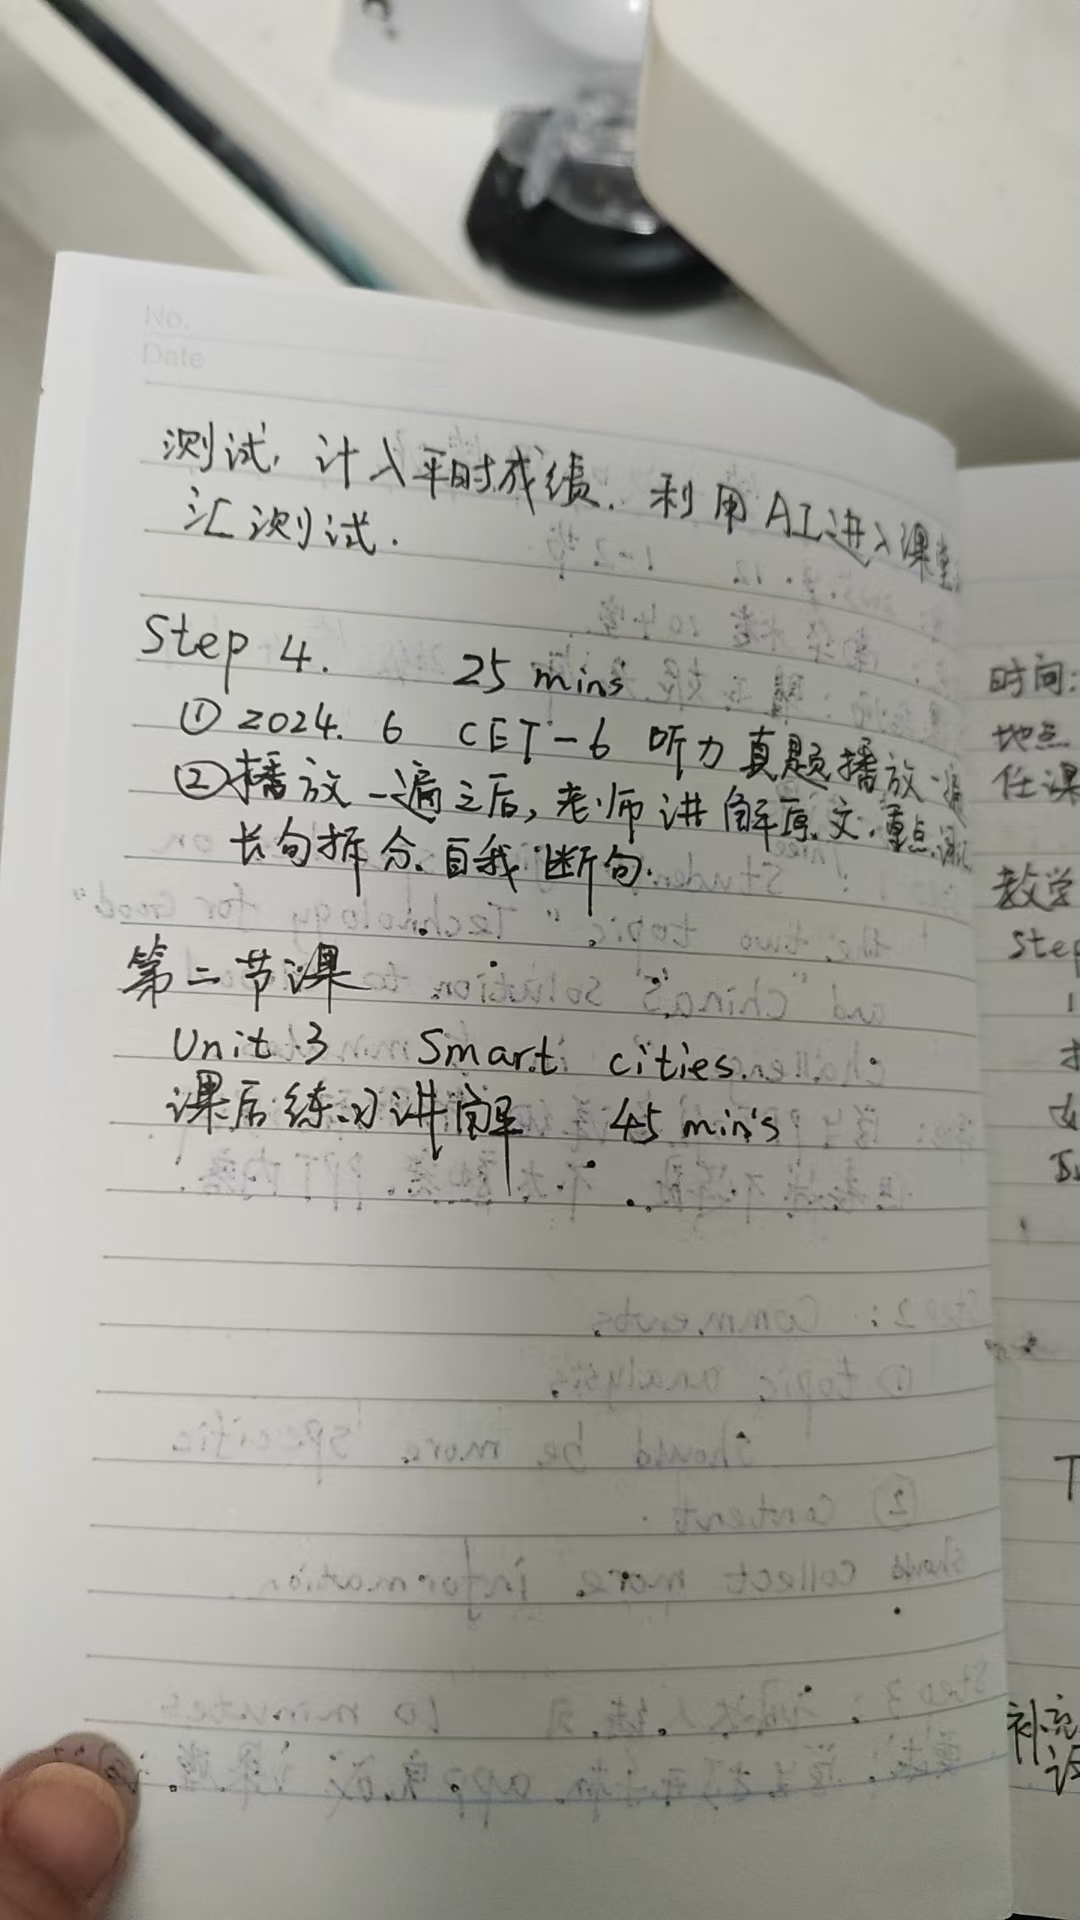 No.
Date
测试,计入平时成绩.利用AI进入课堂
汇测试.
Step 4. 25 mins
① 2024. 6 CET-6 听力真题播放一遍
②播放一遍之后,老师讲解原文.重点词汇
长句拆分.自我断句.
第二节课
Unit 3 Smart cities.
课后练习讲解 45 min's
时间:
地点
任课
教学
Step
1
T
补充